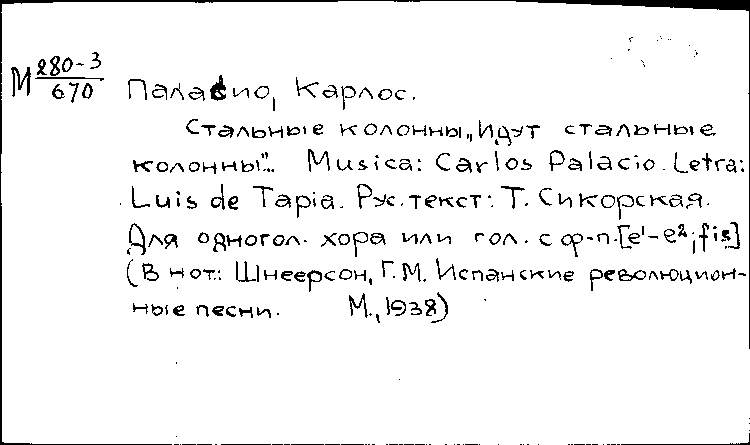 М 280-3
670
Паласио, Карлос.
Стальные колонны „Идут стальные
колонны"... Musica: Carlos Palacio. Letra:
Luis de Tapia. Рус. текст: Т. Сикорская.
Для одногол. хора или гол. с ф-п. [e¹-e²; fis]
(В нот.: Шнеерсон, Г.М. Испанские революцион-
ные песни. М., 1938)